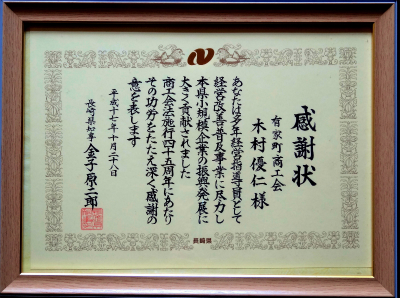 感謝状
有家町商工会
木村優仁様
あなたは多年経営指導員として
経営改善普及事業に尽力し
本県小規模企業の振興発展に
大きく貢献されました
商工会法施行四十五周年にあたり
その功労をたたえ深く感謝の
意を表します
平成十七年十月二十八日
長崎県知事 金子原二郎
長崎県